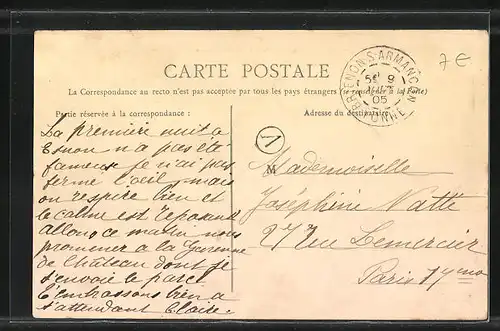 7€
BRIENON-S-ARMANÇON
9
05
YONNE
CARTE POSTALE
La Correspondance au recto n'est pas acceptée par tous les pays étrangers (se renseigner à la Poste)
Partie réservée à la correspondance :
Adresse du destinataire
La première nuit a
Esnon n'a pas été
fameuse je n'ai pas
fermé l'œil mais
on respire bien et
le calme est reposant
allons ce matin nous
promener a la Garenne
de Château dont je
t'envoie le parc
t'embrassons bien a
t'attendant Claire.
A
Mademoiselle
Joséphine Natté
27 rue Lemercier
Paris 17me